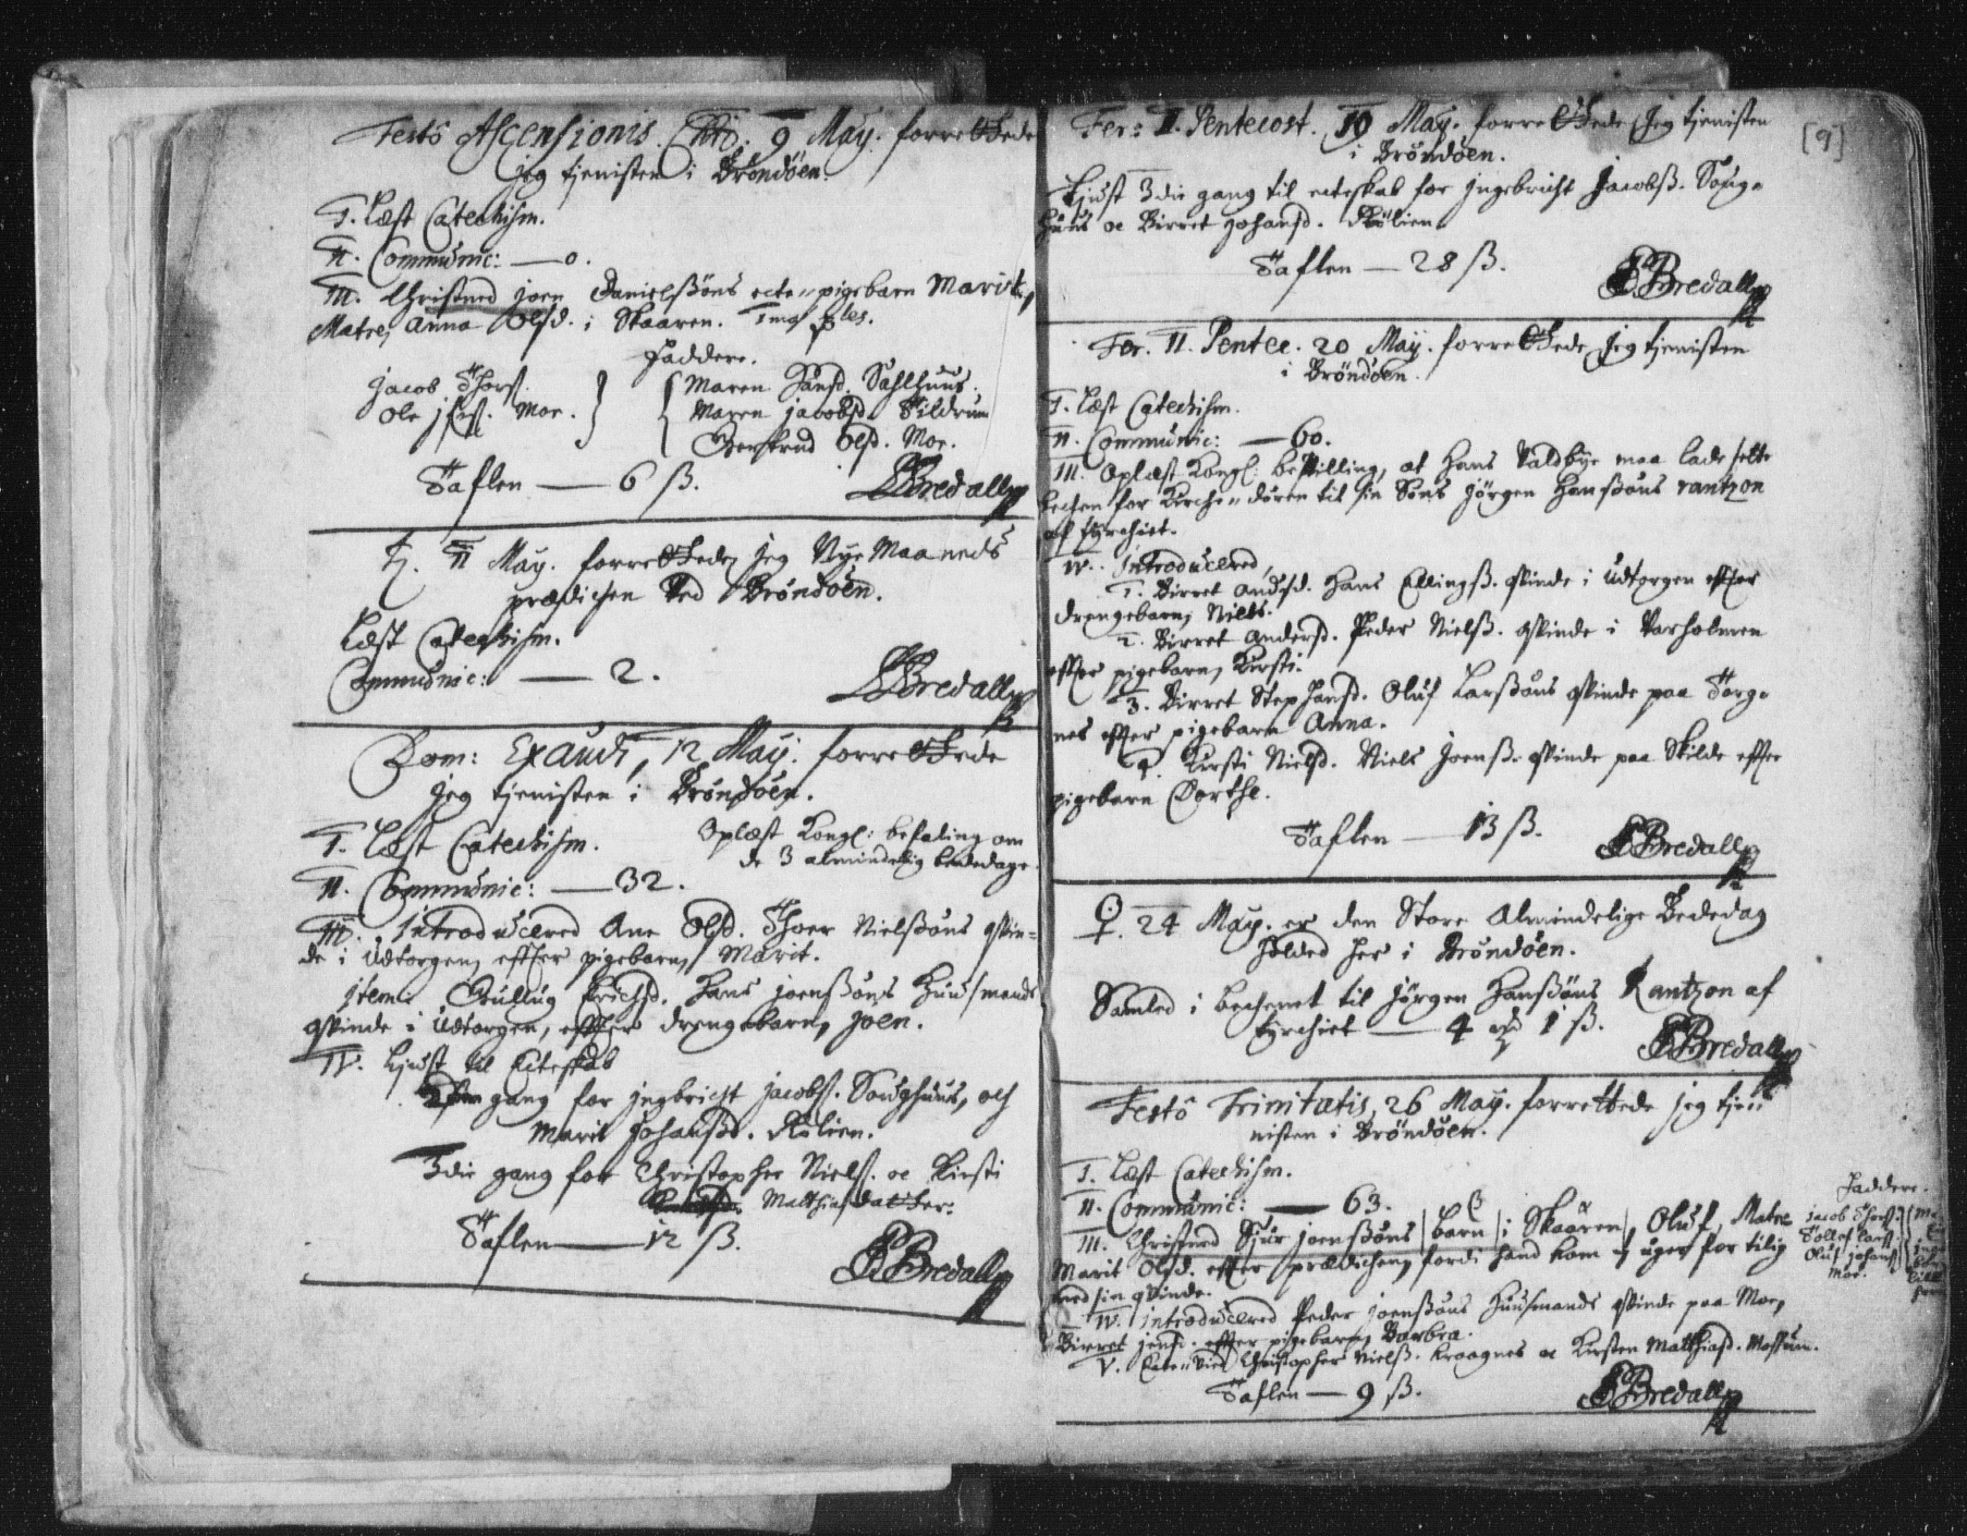 Festô Ascensionis Chri: 9 May. forrettede
jeg tjenisten i Brøndöen.
I. Læst Catechism.
II. Communic: — 0.
III. Christned joen Danielssøns ecte-pigebarn Marit,
Matre, Anna Olsd. i Skaaren.
Faddere.
Jacob Thorss.
Ole Mor.
Maren Hansd. Sahlhuus.
Maren jacobsd. Tildrum
Olsd. Mor.
Taflen — 6 ß.
Bredall
♄. 11 May. forrettede jeg Nye Maaneds
prædichen Ved Brøndöen.
Læst Catechism.
Communic: — 2.
Bredall
Dom: Exaudi, 12 May. forrettede
jeg tjenisten i Brøndöen.
I. Læst Catechism.
Oplæst Kongl: befaling om
de 3 almindelig bededage.
II. Communic: — 32.
III. Introducered Ane Olsd. Thoer Nielssøns qvin-
de i Udtorgen, effter pigebarn, Marit.
jtem. Gullug Erichsd. Hans joenssøns Huusmands
qvinde i Udtorgen, effter drengebarn, joen.
IV. Liust til Ecteskab
gang for jngbricht jacobs. Soughuus, och
Marit Johansd. Kölien.
3die gang for Christopher Niels. oc Kirsti
Matthiasdatter.
Taflen — 12 ß.
Bredall
[9]
Fer: I. Pentecost. 19 May. forrettede jeg tjenisten
i Brøndöen.
Liust 3die gang til ecteskab for jngebricht Jacobss. Soug-
huus oc Birret Johansd. Kölien
Taflen — 28 ß.
Bredall
Fer. II. Pentec. 20 May. forrettede jeg tjenisten
i Brøndöen.
I. Læst Catechism.
II. Communic: — 60.
III. Oplæst Kongl: bevilling, at Hans Valdbye maa lade sette
bechen for Kirche-dören til sin Söns Jörgen Hanssøns rantzon
af Tyrchiet.
IV. Introducered,
1. Birret Andsd. Hans Ellingss. qvinde i Udtorgen effter
drengebarn, Niels.
2. Birret Andersd. Peder Nielss. qvinde i Varholmen
effter pigebarn, Kirsti.
3. Birret Stephansd. Oluf Larssøns qvinde paa Torg-
nes effter pigebarn Anna.
4. Kirsti Nielsd. Niels Joenss. qvinde paa Skilde effter
pigebarn Dorthe.
Taflen — 13 ß.
Bredall
♀. 24 May. er den Store Almindelige Bededag
holded her i Brøndöen.
Samled i bechenet til Jörgen Hanssøns Rantzon af
Tyrchiet — 4 1 ß.
Bredall
Festô Trinitatis, 26 May. forrettede jeg tje-
nisten i Brøndöen.
I. Læst Catechism.
II. Communic: — 63.
III. Christned Sjur joenssøns barn i Skaaren, Oluf, Matre
Marit Olsd. effter prædichen, fordi hand kom uger for tilig
med sin qvinde.
Faddere.
Jacob Thorss.
Tollef Larss.
Oluf johanss.
Mor.
IV. introducered Peder joenssøns Huusmands qvinde paa Moe,
Birret jensd. effter pigebarn, Barbra.
V. Ecte-Vied Christopher Nielss. Kroagnes oc Kirsten Matthiasd. Mossum.
Taflen — 9 ß.
Bredall